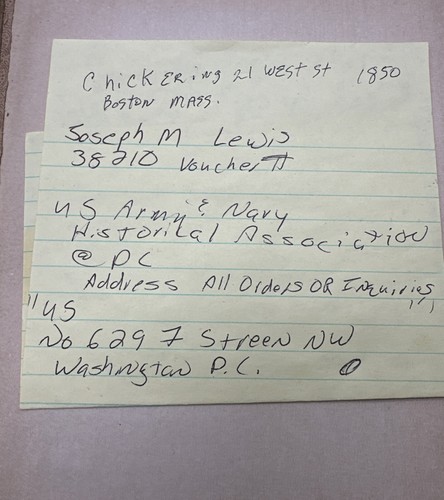 Chickering 21 West St 1850
Boston Mass.
Joseph M Lewis
38210 Voucher #
US Army & Navy
Historical Association
@ DC
Address All Orders OR Inquiries
"US "
No 629 7 Streen NW
Washington D.C.